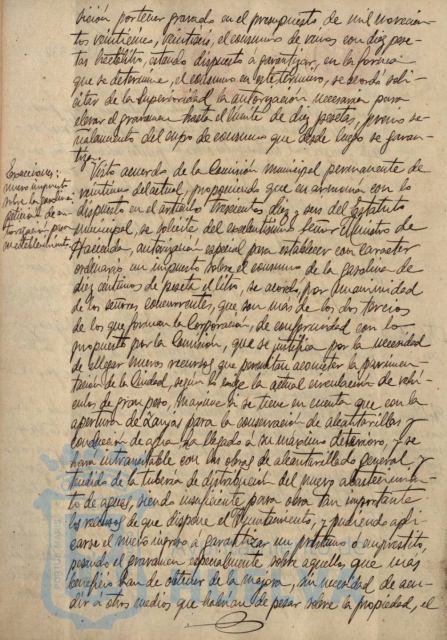 sición por tener gravado en el presupuesto de mil novecien
tos veinticinco, veintiseis, el consumo de vinos con diez pese
tas hectólitro, estando dispuesto á garantizar, en la forma
que se determine, el consumo en este término, se acordó soli
citar de la Superioridad la autorización necesaria para
elevar el gravamen hasta el límite de diez pesetas, previo se
ñalamiento del cupo de consumo que desde luego se garan
tiza.
Exacciones:
nuevo impuesto
sobre la gasolina
petición de au
torización para
su establecimiento
Visto acuerdo de la Comisión municipal permanente de
veintiuno del actual, proponiendo que en armonía con lo
dispuesto en el artículo trescientos diez y seis del Estatuto
Municipal, se solicite del excelentísimo señor Ministro de
Hacienda, autorización especial para establecer con carácter
ordinario un impuesto sobre el consumo de la gasolina de
diez céntimos de peseta el litro, se acordó, por unanimidad
de los señores concurrentes, que son más de los dos tercios
de los que forman la Corporación, de conformidad con lo
propuesto por la Comisión, que se justifica por la necesidad
de allegar nuevos recursos que permitan acometer la pavimen
tación de la Ciudad, según lo exige la actual circulación de vehí
culos de gran peso, máxime si se tiene en cuenta que con la
apertura de zanjas para la conservación de alcantarillas y
conducción de agua ha llegado á su máximo deterioro, y se
hará intransitable con las obras de alcantarillado general y
tendido de la tubería de distribución del nuevo abastecimien
to de aguas, siendo insuficiente para obra tan importante
los recursos de que dispone el Ayuntamiento, y pudiendo apli
carse el nuevo ingreso á garantizar un préstamo ó empréstito,
pesando el gravamen especialmente sobre aquellos que más
beneficio han de obtener de la mejora, sin necesidad de acu
dir á otros medios que habrían de pesar sobre la propiedad, el